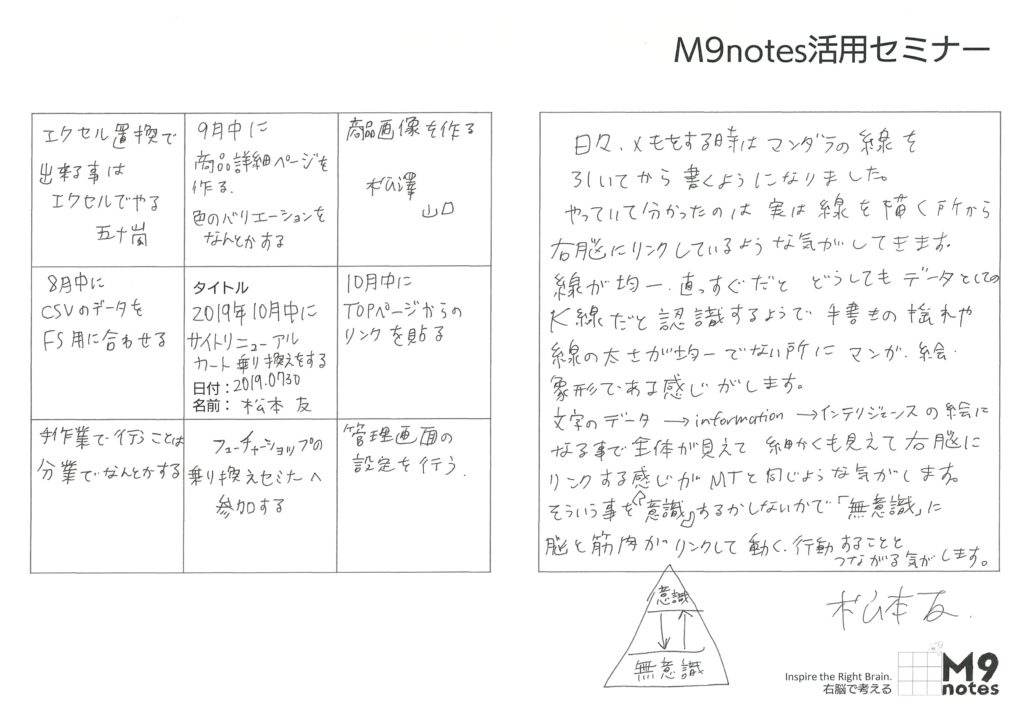 M9notes活用セミナー
エクセル置換で
出来る事は
エクセルでやる
五十嵐
9月中に
商品詳細ページを
作る.
色のバリエーションを
なんとかする
商品画像を作る
松澤
山口
8月中に
CSVのデータを
FS用に合わせる
タイトル
2019年10月中に
サイトリニューアル
カート乗り換えをする
日付:2019.0730
名前: 松本 友
10月中に
TOPページからの
リンクを貼る
手作業で行うことは
分業でなんとかする
フューチャーショップの
乗り換えセミナーへ
参加する
管理画面の
設定を行う.
日々、メモをする時はマンダラの線を
引いてから書くようになりました。
やっていて分かったのは実は線を描く所から
右脳にリンクしているような気がしてきます。
線が均一、直っすぐだと どうしてもデータとしての
線だと認識するようで 手書きの揺れや
線の太さが均一でない所に マンガ、絵、
象形である感じがします。
文字のデータ→information→インテリジェンスの絵に
なる事で全体が見えて 細かくも見えて右脳に
リンクする感じがMTと同じような気がします。
そういう事を「意識」するかしないかで「無意識」に
脳と筋肉がリンクして動く、行動することと
つながる気がします。
意識
無意識
松本友.
Inspire the Right Brain.
右脳で考える
M9
notes